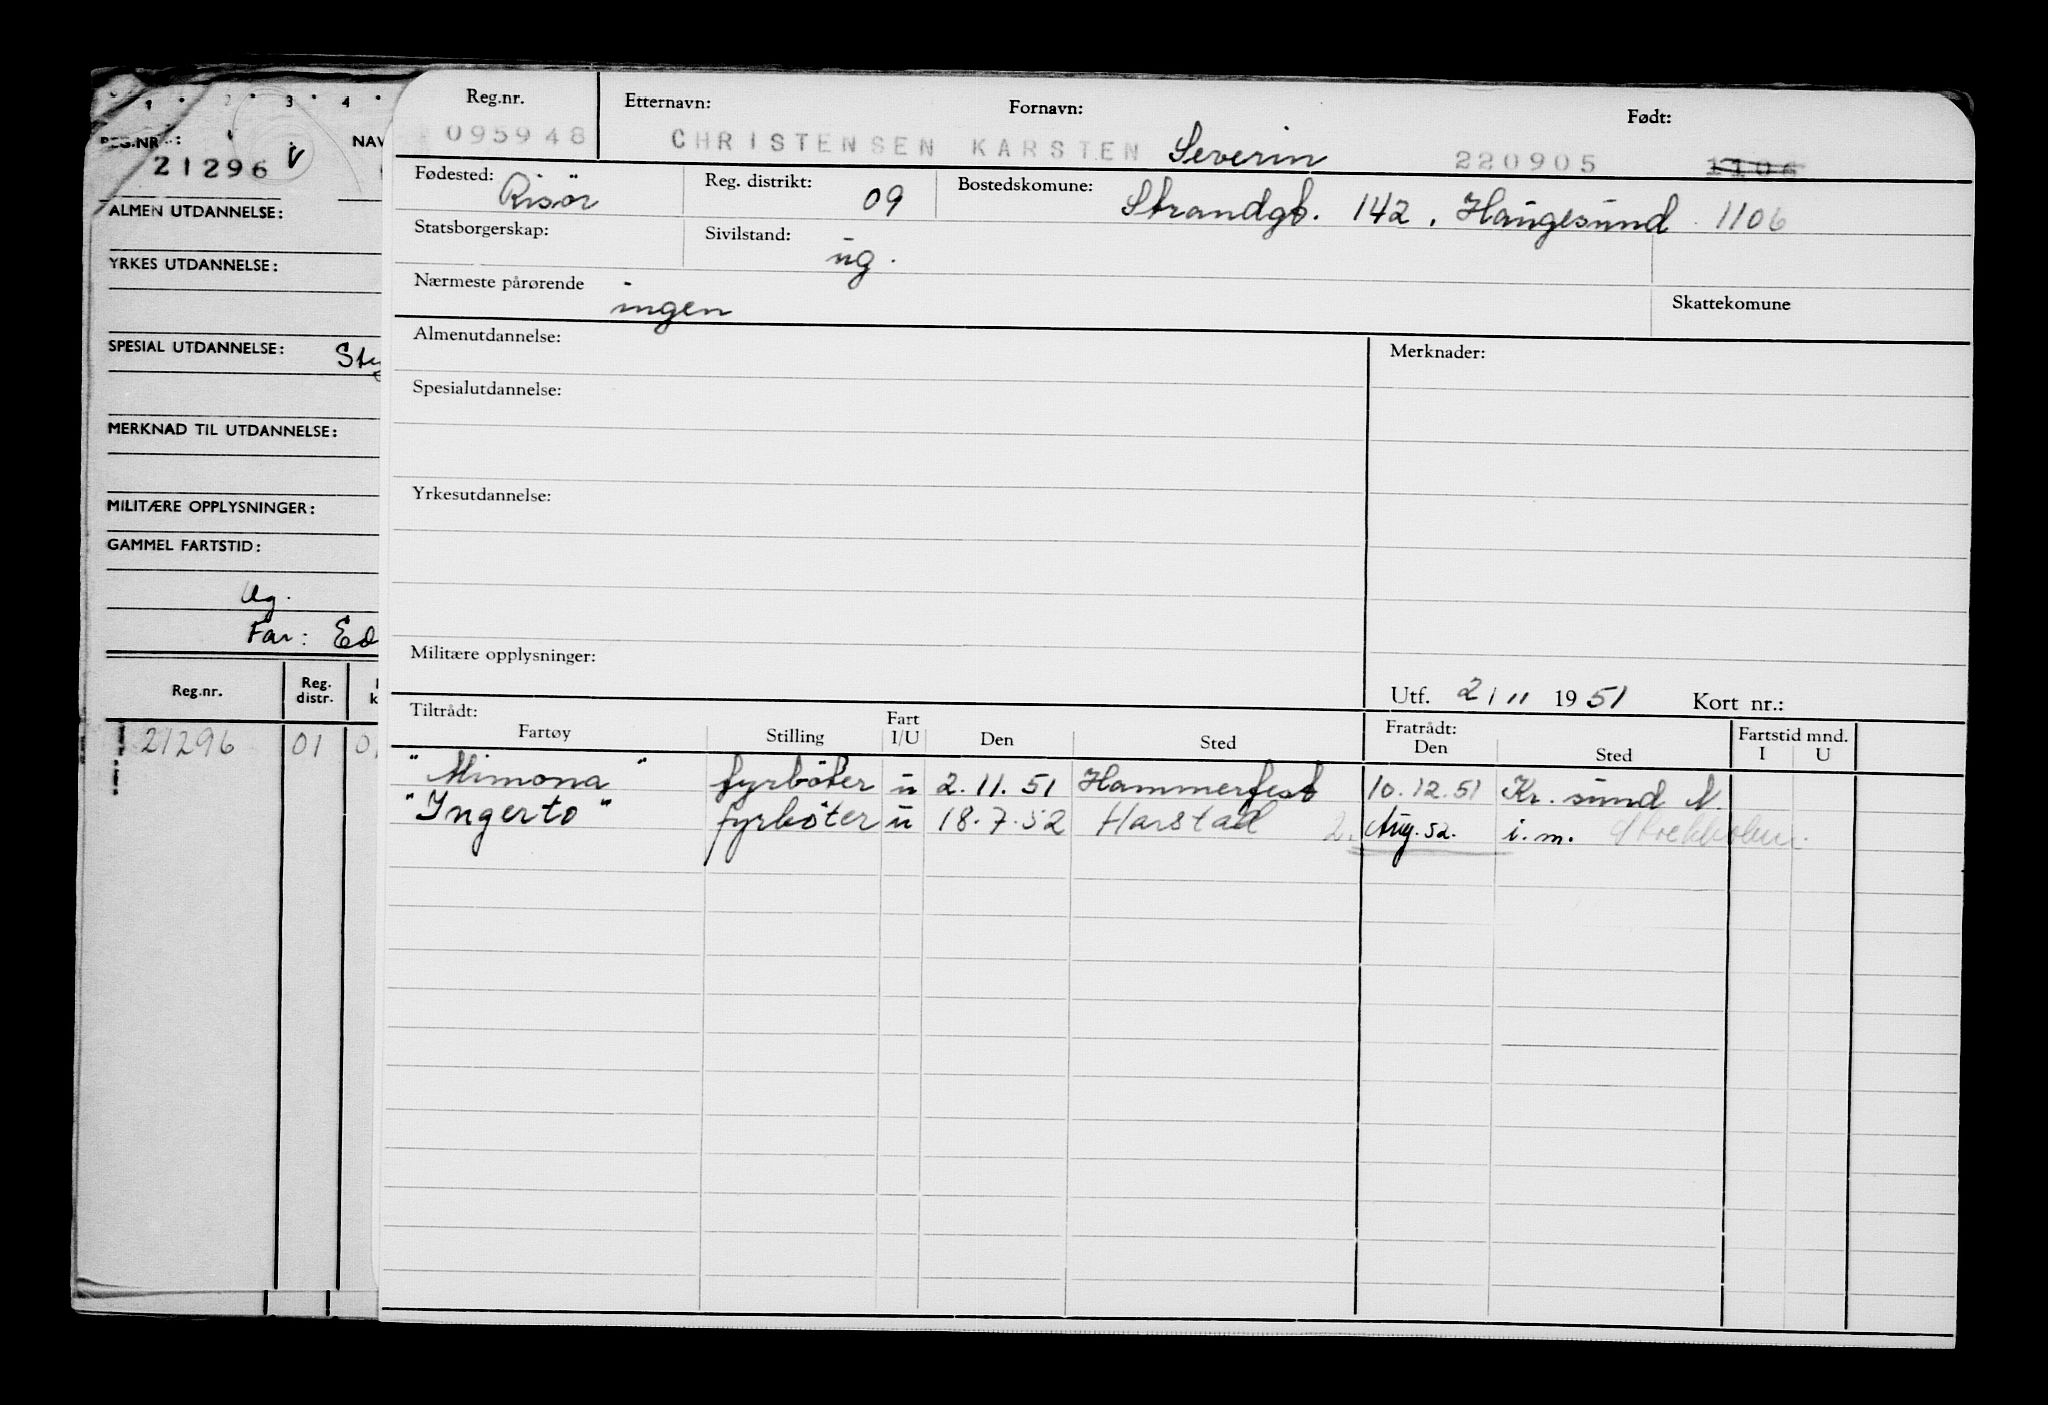 1 2 3 4
REG.NR.: NAV
21296 V
ALMEN UTDANNELSE:
YRKES UTDANNELSE:
SPESIAL UTDANNELSE: Sty
MERKNAD TIL UTDANNELSE:
MILITÆRE OPPLYSNINGER:
GAMMEL FARTSTID:
Ug.
Far: Ed
Reg.nr. Reg. distr. k
21296 01 0
Reg.nr. Etternavn: Fornavn: Født:
095948 CHRISTENSEN KARSTEN Severin 220905 1106
Fødested: Risör Reg. distrikt: 09 Bostedskomune: Strandgt. 142, Haugesund 1106
Statsborgerskap: Sivilstand: ug.
Nærmeste pårørende ingen Skattekomune
Almenutdannelse: Merknader:
Spesialutdannelse:
Yrkesutdannelse:
Militære opplysninger:
Utf. 2/11 1951 Kort nr.:
Tiltrådt: Fart Fratrådt: Fartstid mnd.
Fartøy Stilling I/U Den Sted Den Sted I U
"Mimona" fyrböter u 2.11.51 Hammerfest 10.12.51 Kr.sund N.
"Ingerto" fyrböter u 18.7.52 Harstad 2. Aug.52. i.m. Stockholm.